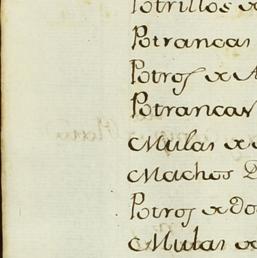 Potrillos de
Potrancas
Potros de A
Potrancas
Mulas de
Machos D
Potros de do
Mulas de